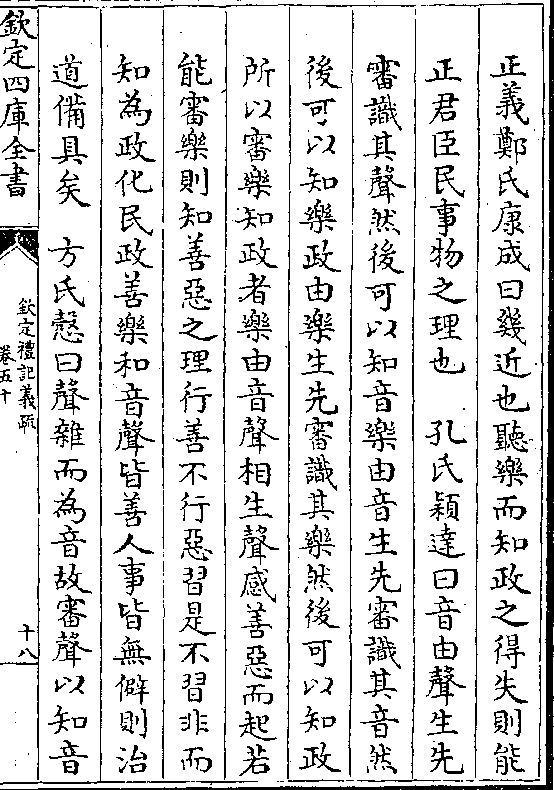 正義鄭氏康成曰幾近也聽樂而知政之得失則能
正君臣民事物之理也　孔氏穎達曰音由聲生先
審識其聲然後可以知音樂由音生先審識其音然
後可以知樂政由樂生先審識其樂然後可以知政
所以審樂知政者樂由音聲相生聲感善惡而起若
能審樂則知善惡之理行善不行惡習是不習非而
知為政化民政善樂和音聲皆善人事皆無僻則治
道備具矣　方氏慤曰聲雜而為音故審聲以知音
欽定四庫全書
欽定禮記義疏
卷五十
十八